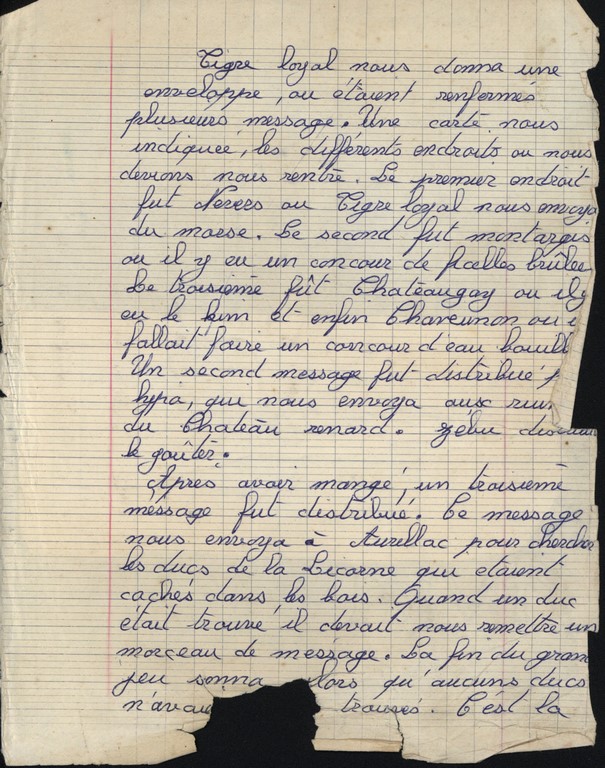 Tigre loyal nous donna une
enveloppe, ou étaient renfermés
plusieurs message. Une carte nous
indiquée, les différents endroits ou nous
devions nous rentre. Le premier endroit
fut Nevers ou Tigre loyal nous envoya
du morse. Le second fut montargis
ou il y eu un concour de ficelles brûlée
Le troisième fût Chateaugay ou il y
eu le kim et enfin ou
fallait faire un concour d'eau bouill
Un second message fut distribué
hypo, qui nous envoya aux
du Chateau renard. zébu
le goûter.
Après avoir mangé, un troisième
méssage fut distribué. Ce message
nous envoya à Aurellac pour chercher
les ducs de la Licorne qui etaient
cachés dans les bois. Quand un duc
était trouvé il devait nous remettre un
morceau de méssage. La fin du gran
jeu sonna lors qu'aucuns ducs
n'avai trouvés. C'est la